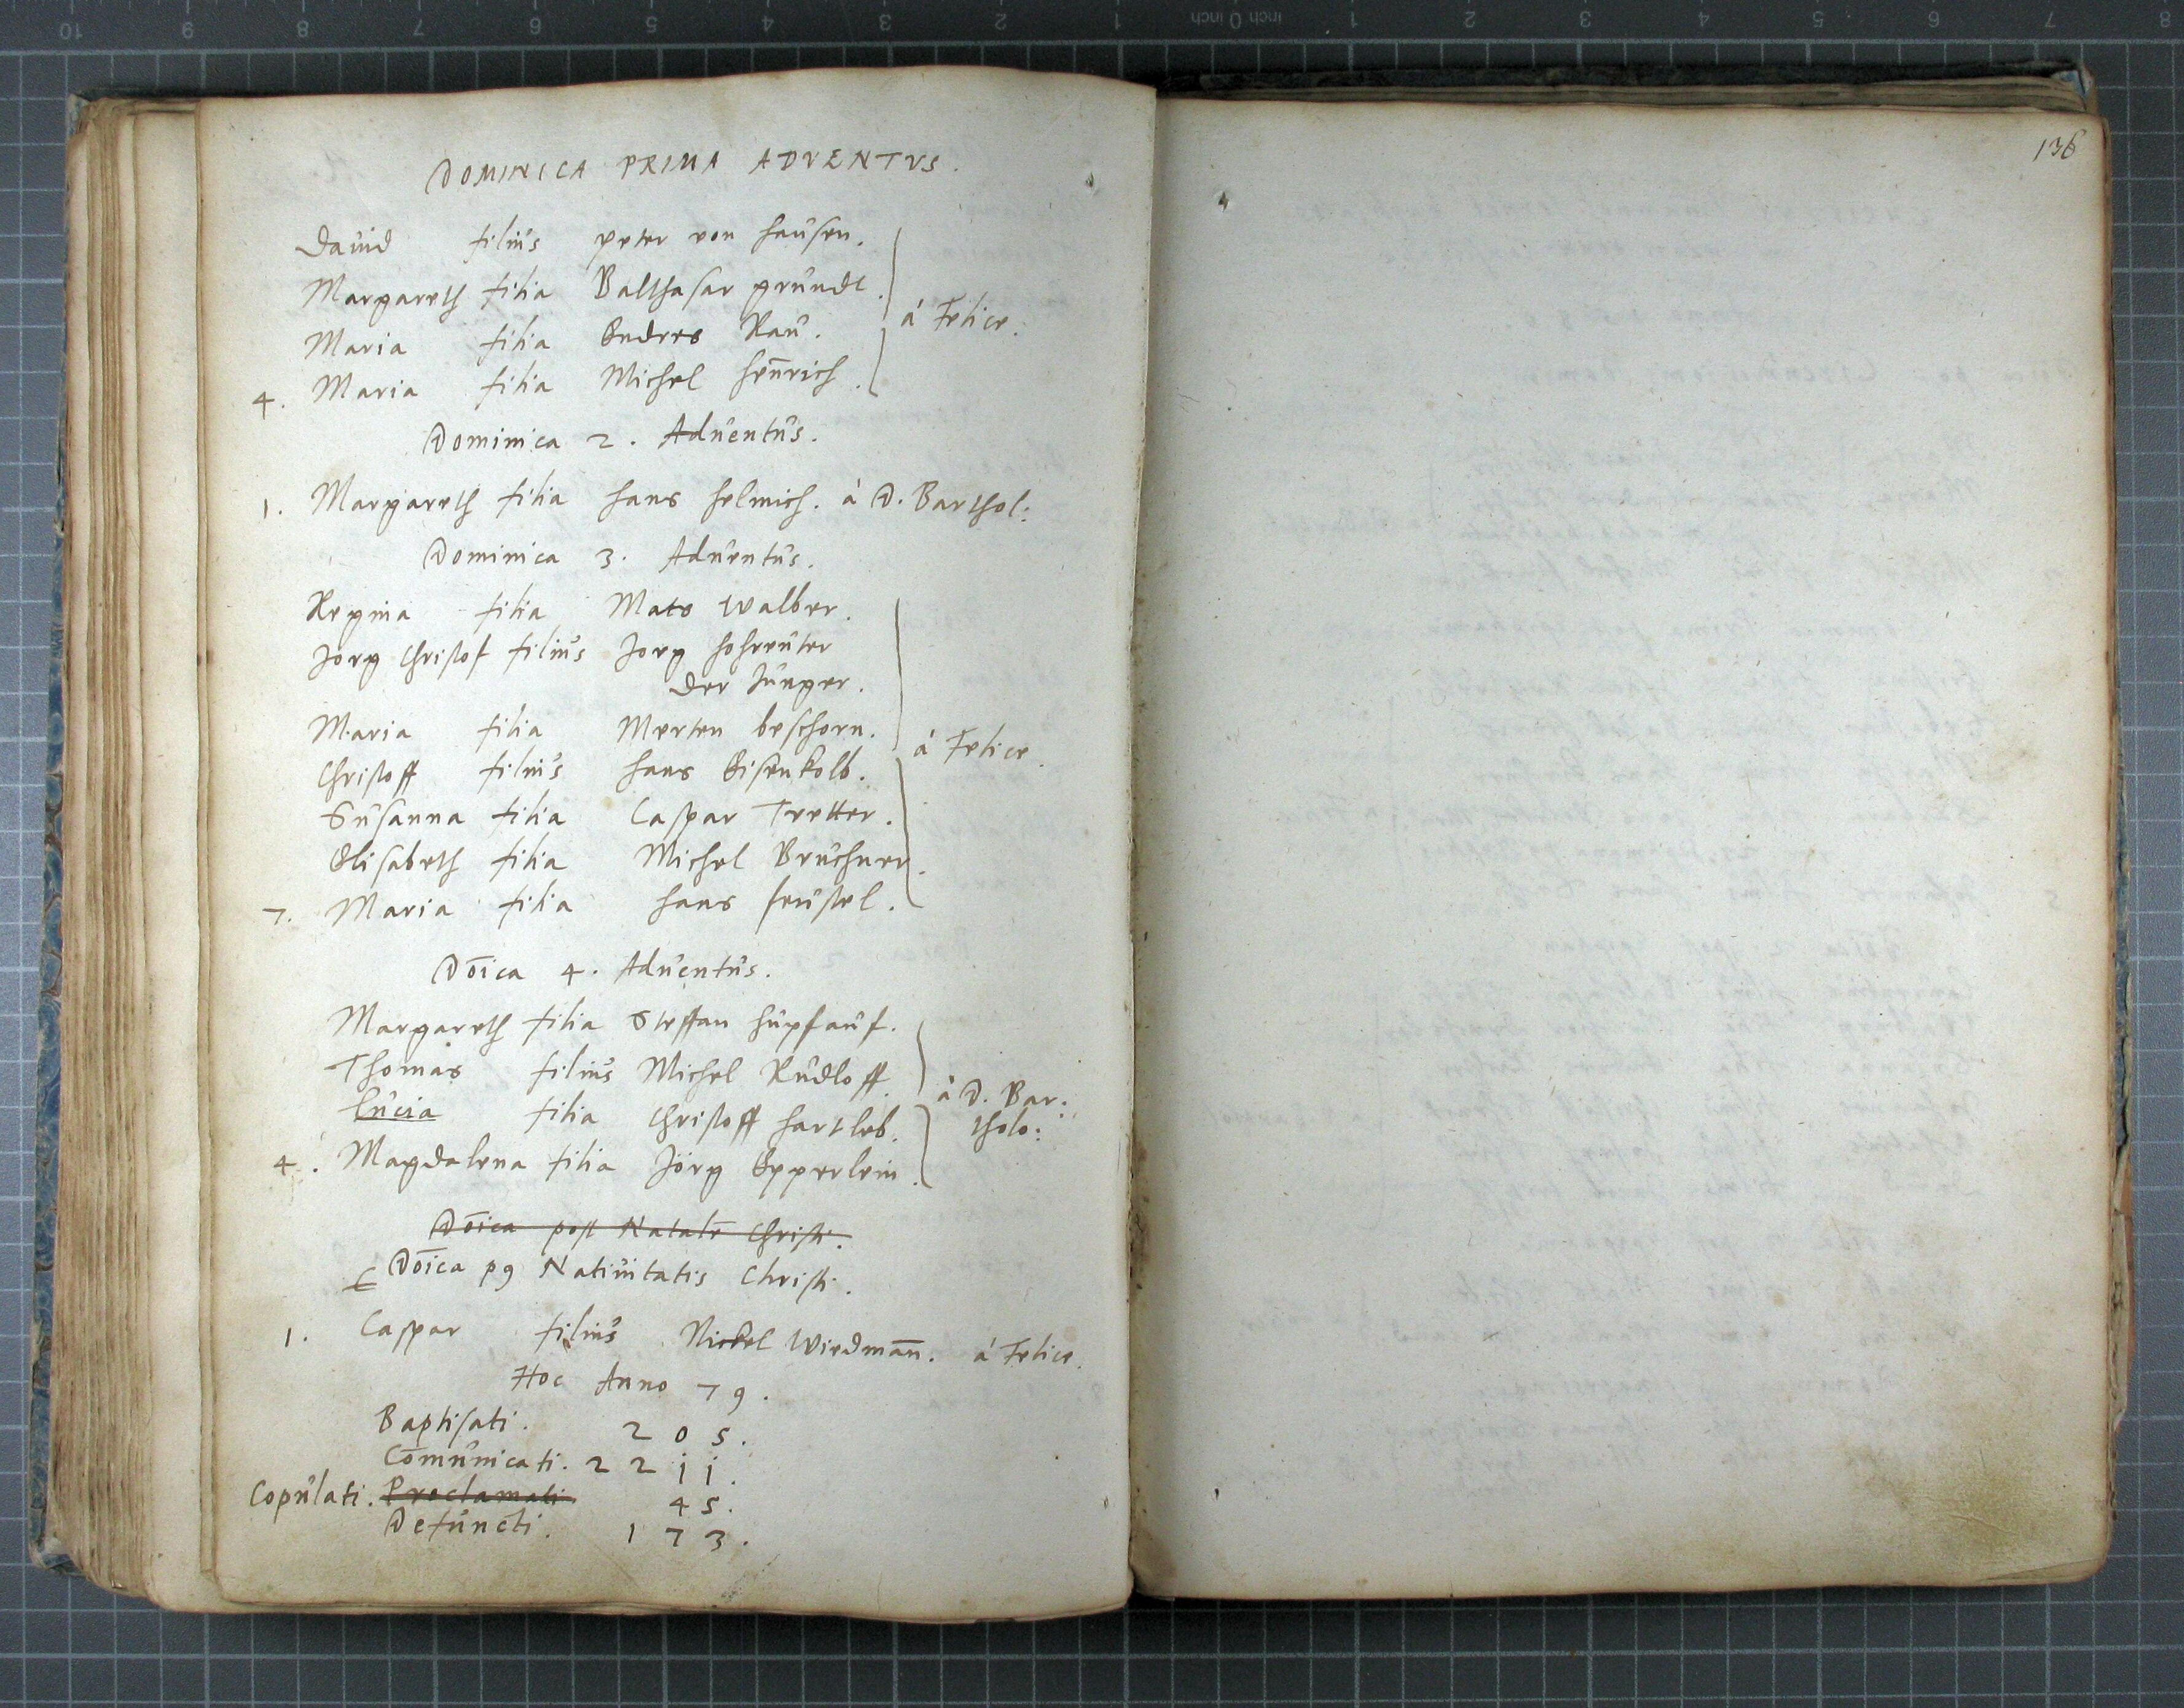 DOMINICA PRIMA ADVENTVS.
Dauid filius peter von hausen.
Margareth filia Balthasar grundl.
Maria filia Endres Rau. á Felice.
4. Maria filia Michel hen̄rich.
Dominica 2. Aduentus.
1. Margareth filia hans helmich. á D. Barthol:
Dominica 3. Aduentus.
Regina filia Mats Walber.
Jorg Christof filius Jorg hohreuter
der Junger.
Maria filia Merten beschorn.
Christoff filius hans Eisenkolb. á Felice.
Susanna filia Caspar Tretter.
Elisabeth filia Michel Bruchner.
7. Maria filia hans feustel.
Dōica 4. Aduentus.
Margareth filia Steffan hupfauf.
Thomas filius Michel Rudloff.
Lucia filia Christoff hartleb. á D. Bar:
tholo:
4. Magdalena filia Jörg Epperlein.
Dōica post Natalē Christi.
Dōica p9 Natiuitatis Christi.
1. Caspar filius Nickel Wiedman̄. á Felice.
Hoc Anno 79.
Baptisati. 205.
Com̄unicati. 2211.
Copulati. Proclamati 45.
Defuncti. 173.
136